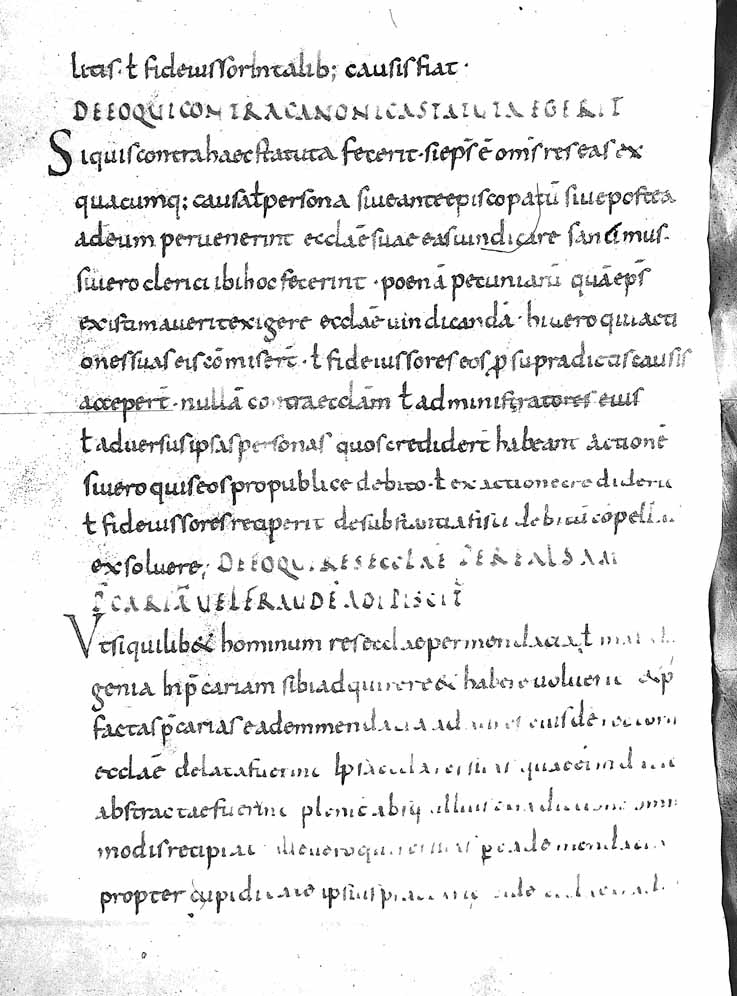 litis· ł fideiussor in talib; causis fiat·
DE EO QUI CONTRA CANONICA STATUTA EGERIT
Siquis contra haec statuta fecerit· si ep̄s ē om̄s res eas ex
quacumq; causa ł persona sive ante episcopatū sive postea
ad eum pervenerint ecclāe suae eas vindicare sancimus·
sivero clerici ibi hoc fecerint· poenā pecuniarū quā ep̄s
existimaverit exigere ecclāe vindicandā· hi vero qui acti
ones suas eis cōmiserīt· ł fideiussores eos p̄ supradictis causis
acceperīt· nullā contra ecclām ł administratores eius
ł adversus ipsas personas quos crediderīt habeant actionē
sivero quis eos pro publice debito· ł ex actione crediderit
ł fideiussores reciperit de substantia sui debitū cōpell
exsolvere; DE EO QUI RES ECCLAE PER FALSAM
P̄CARIĀ VEL FRAUDĒ ADIPISCIT̄
Ut siquilib& hominum res ecclae per mendacia ł mal
genia hi p̄cariam sibi adquirere & habere voluerit & p̄
factas p̄carias eadem mendacia ad eiusdē rectorū
ecclāe delata fuerint
abstractae fuerint plenit abiq; ullius
modis recipiat ille vero qui p̱ eadem mendacia
propter cupiditate ipsius